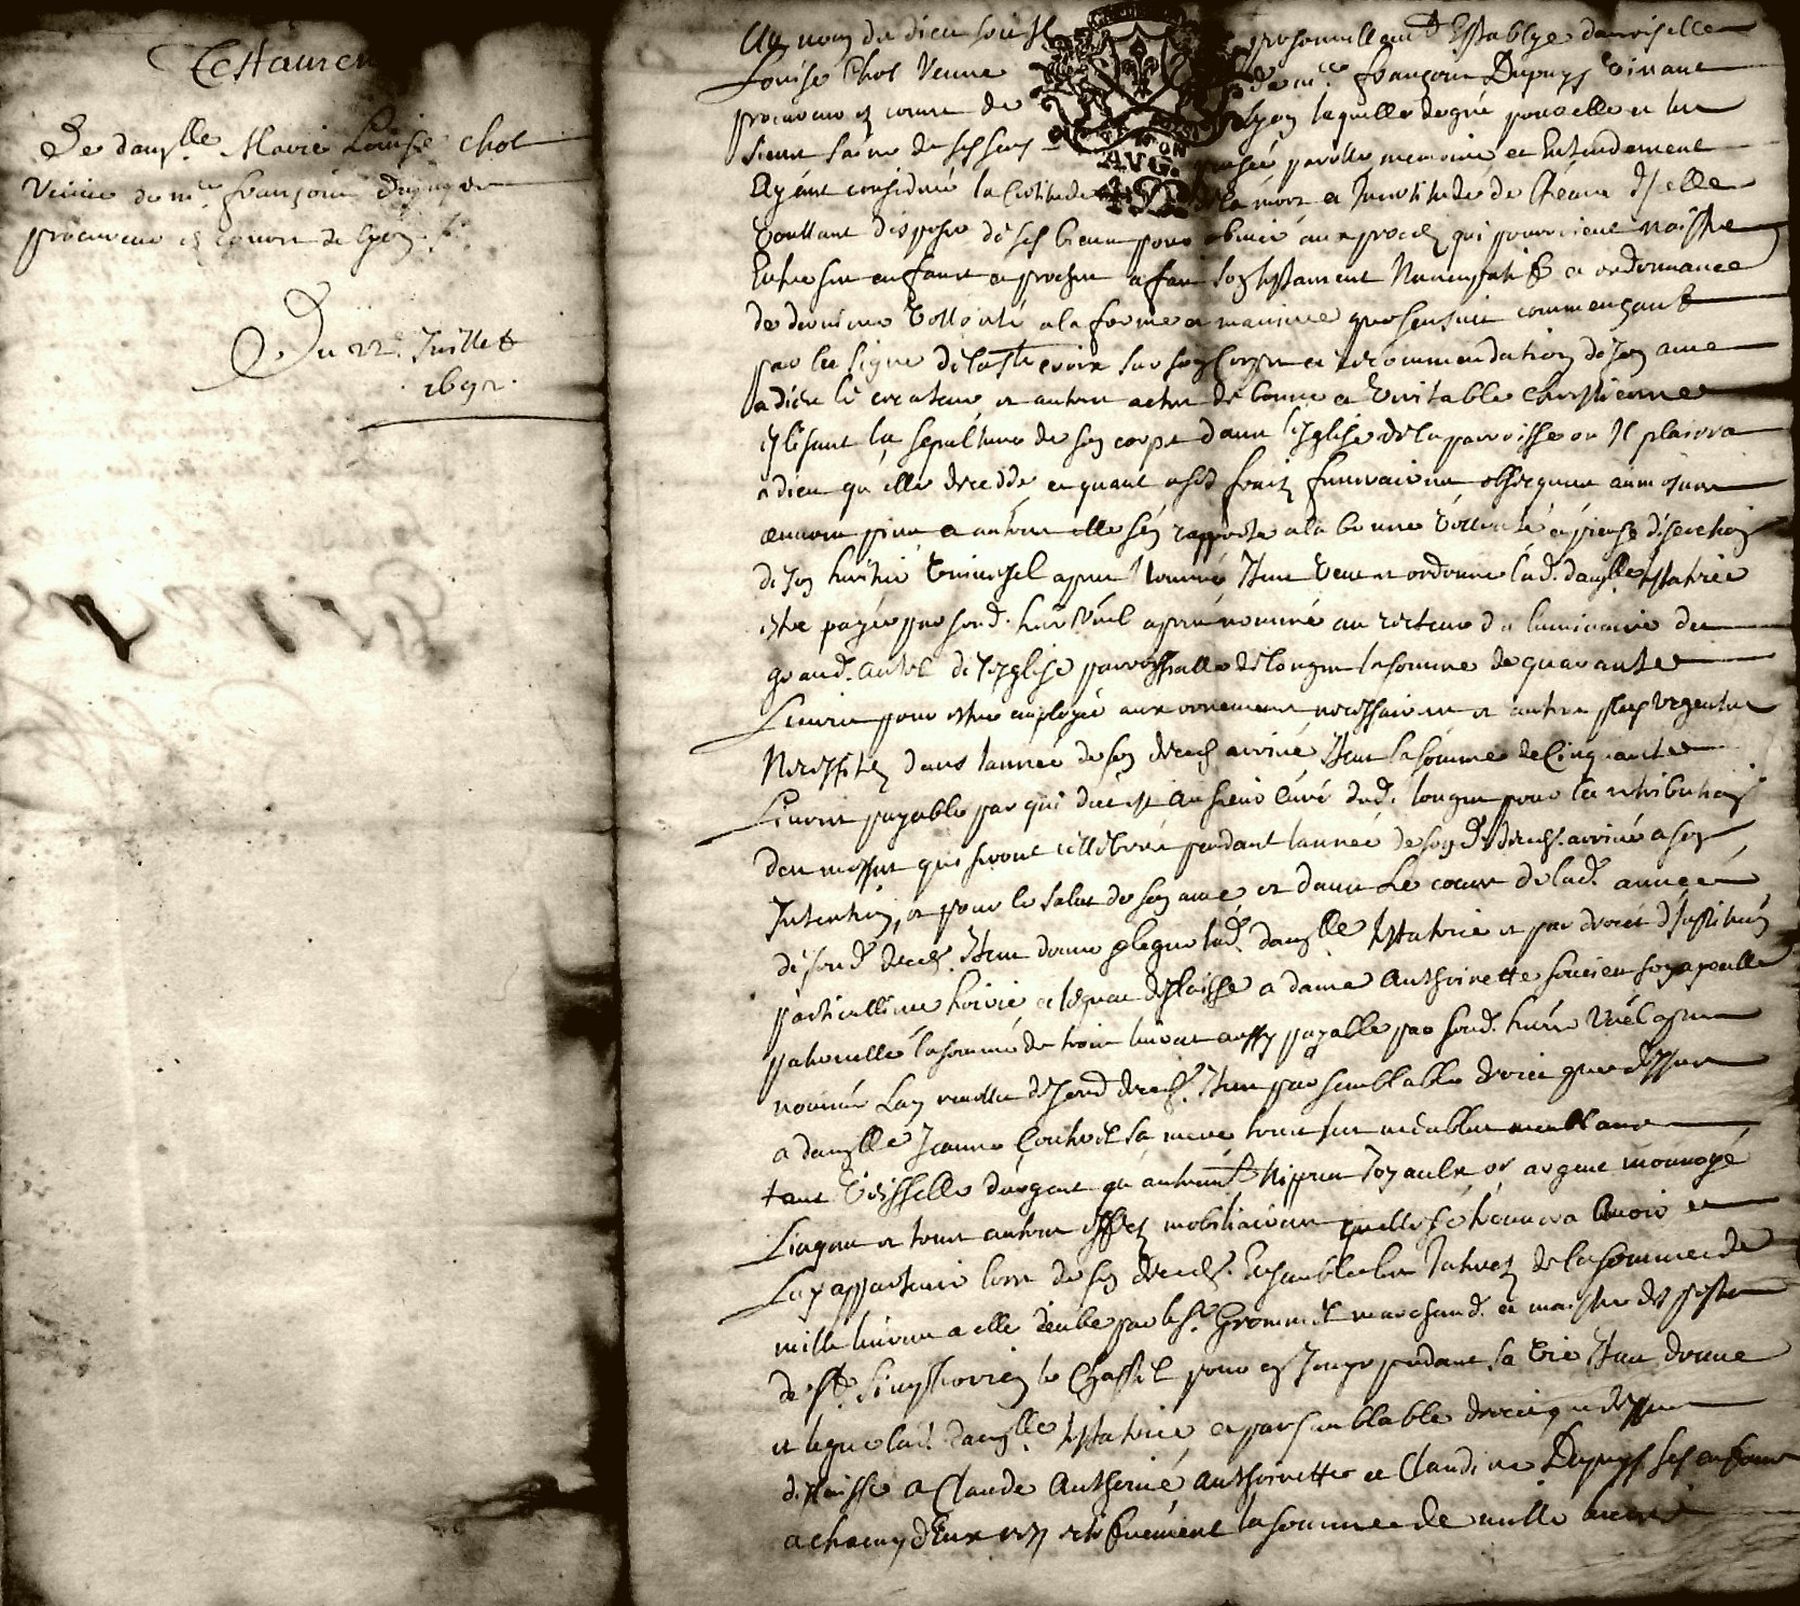 Testament
De dam.lle Marie Louise Chol
Veuve de m.e françois Dupuys
procureur ez cours de Lyon
Du 22e Juillet
1692.
Au nom de dieu soit personnellemt Establye damoiselle
Louise Chol Veuve de m.e françois Dupuys Vivant
procureur ez cours de Lyon laquelle de gré pour elle et les
siens saine de ses sens AVG. pensée parolle memoire et Entendement
Ayant consideré la Certitude de la mort et Incertitude de l'heure d'Icelle
Voullant disposer de ses biens pour obvier aux procez qui pourroient naistre
Entre ses enfans et proches a fait son testament Nuncupatif et ordonnance
de derniere Vollonté a la forme et maniere que sensuit commençant
par le signe de la ste croix sur son Corps et recommendation de son ame
a dieu le createur et autres actes de bonne et Veritable chrestienne
Eslisant la sepulture de son corps dans l'Eglise de la parroisse ou Il plairra
a dieu qu'elle decedde et quant a ses fraiz funeraires obseques aumosnes
œuvres pies et autres elle s'en rapporte a la bonne Vollonté et pieuse discretion
de son heritier Universel apres Nommé Item Veut et ordonne lad. dam.lle testatrice
estre payée par sond. herr Vnel apres nommé au recteur du luminaire du
grand autel de l'Eglise parroissialle de Longes la somme de quarante
Livres pour estre employée aux ornemens necessaires et autres plus Vrgentes
Necessitez dans l'année de son decedz arrivé Item la somme de Cinquante
Livres payable par qui dict est au sieur Curé dud. Longes pour la retribution
des messes qui seront cellebrées pendant l'année de sond. decedz arrivé a son
Intention, et pour le salut de son ame et dans Le cours de lad. année
de sond. decedz. Item donne et legue lad. dam.lle testatrice et par droict d'Institution
particulliere hoirie et legat delaisse a dame Anthoinette sa
paternelle la somme de trois livres aussy payable par sond. herr Vnel apres
nommé Lan revollu de sond decedz. Item par semblable droict que dessus
a dam.lle Jeanne sa mere tous ses meubles meublans
tant Vaisselle d'argent qu'autremt Nippes Joyaulx or argent monnoyé
Linges et tous autres effectz mobiliaires quelle se trouvera Avoir et
Luy appartenir lors de son decedz. Ensemble les Interetz de la somme de
mille livres a elle deube par le sr. Grommel marchand. et maistre des postes
de st. Simphorien le Chastel pour en Jouyr pendant sa Vie Item donne
et legue lad. dam.lle testatrice et par semblable droict que dessus
delaisse a Claude Antheine Anthoinette et Claudine Dupuys ses enfans
a chacun d'Eux la somme de mille livres